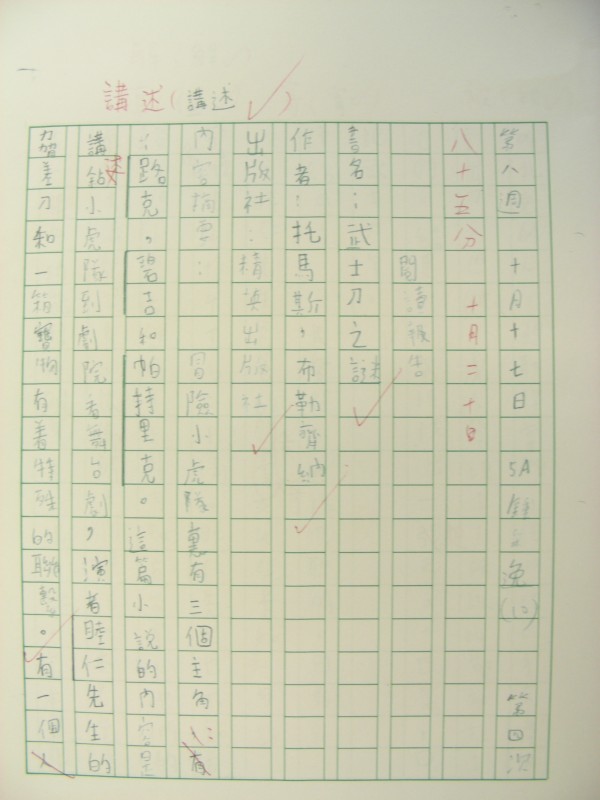 講述(講述)
第八週 十月十七日 5A 鍾 逸(12) 第四次
八十五分 十月二十日
閱讀報告
書名：武士刀之謎
作者：托馬斯，布勒齊納
出版社：精英出版社
內容摘要： 冒險小虎隊裏有三個主角有
：路克，碧吉和帕特里克。這篇小說的內容是
講述鉆小虎隊到劇院看舞台劇，演者睦仁先生的
幕差刀和一箱寶物有着特殊的聯繫。有一個人